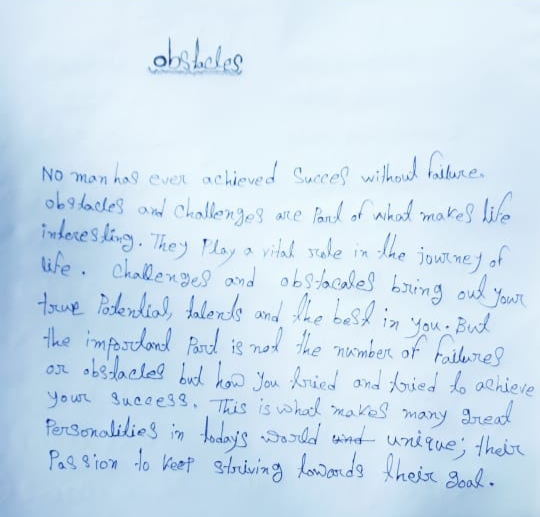 obstacles
No man has ever achieved Succes without failure.
obstacles and challenges are Part of what makes life
interesting. They Play a vital role in the journey of
life. challenges and obstacales bring out your
true Potential, talents and the best in you. But
the important Part is not the number of failures
or obstacles but how you tried and tried to achieve
your success. This is what makes many great
Personalities in today's world und unique; their
Passion to keep striving towards their goal.